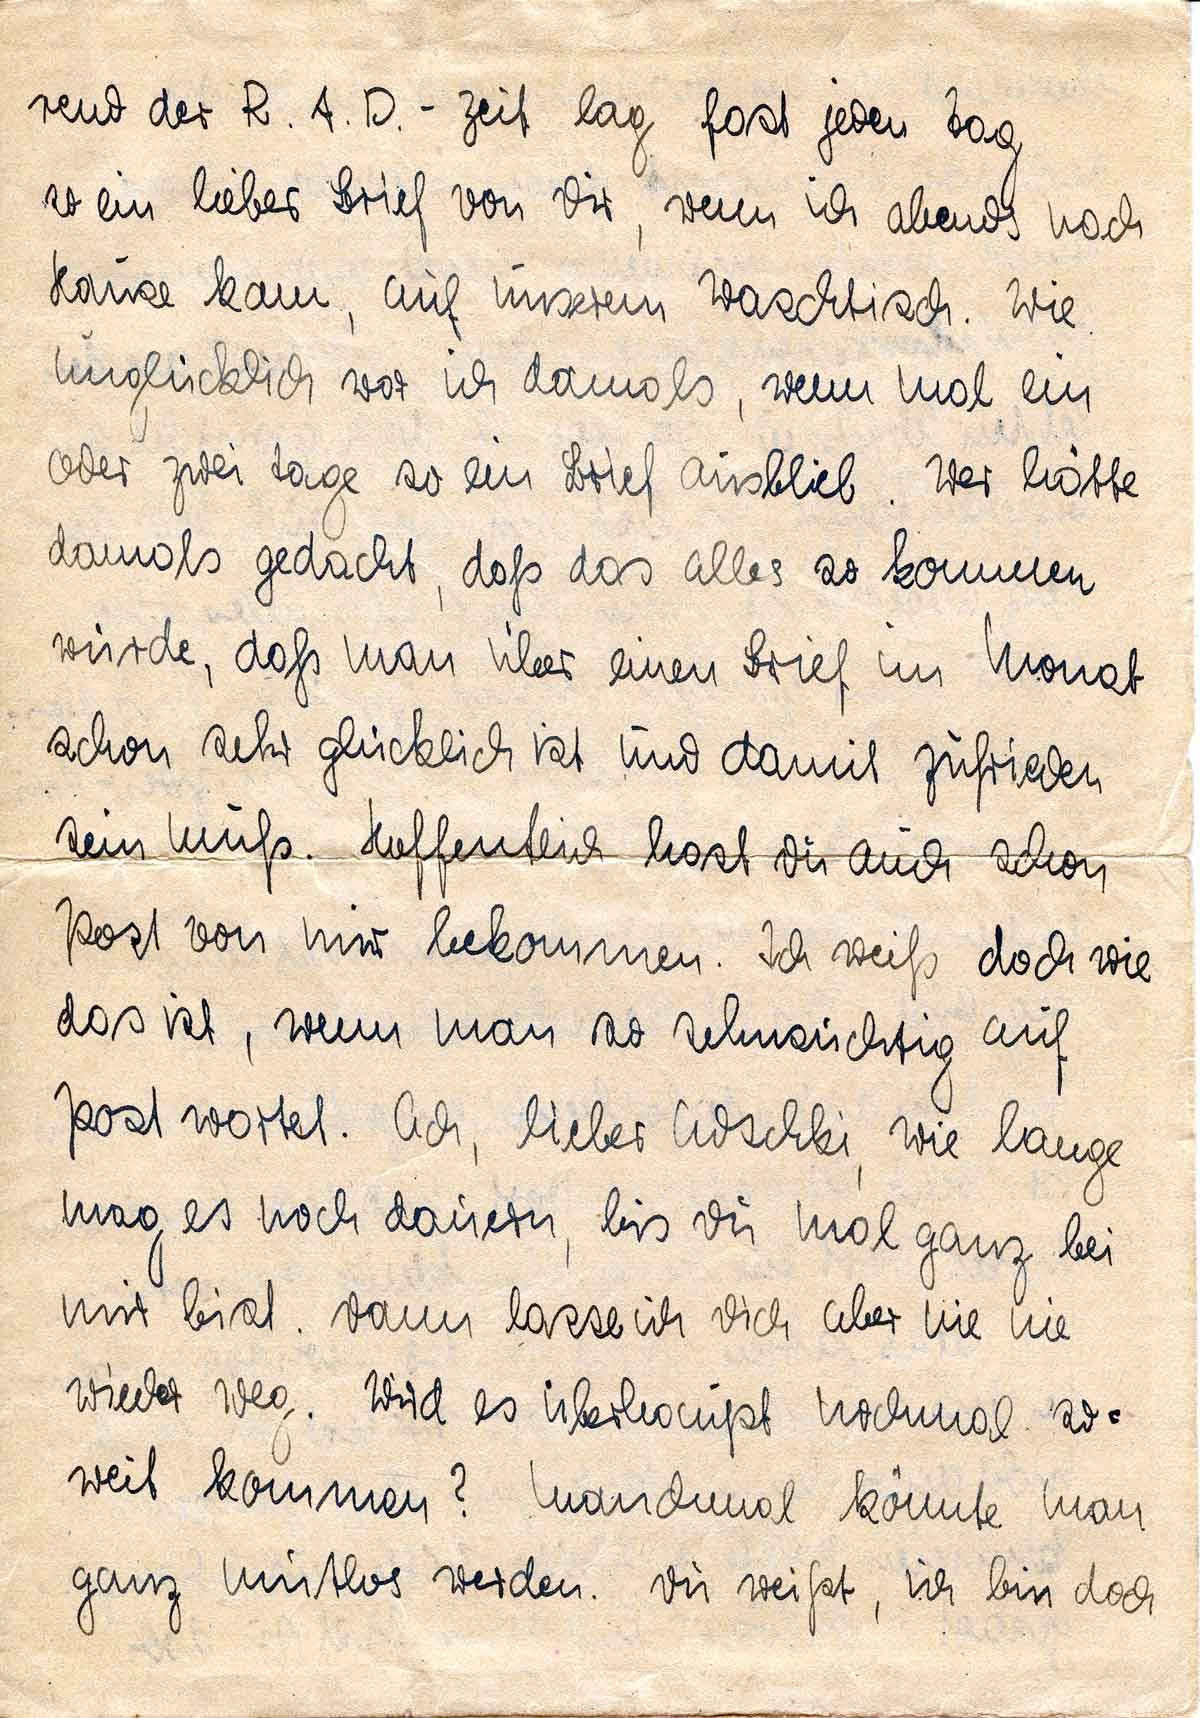 rend der R. A. D. - Zeit lag fast jeden Tag
so ein lieber Brief von Dir, wenn ich abends nach
Hause kam, auf unserem Waschtisch. Wie
unglücklich war ich damals, wenn mal ein
oder zwei Tage so ein Brief ausblieb. Wer hätte
damals gedacht, daß das alles so kommen
würde, daß man über einen Brief im Monat
schon sehr glücklich ist und damit zufrieden
sein muß. Hoffentlich hast Du auch schon
Post von mir bekommen. Ich weiß doch wie
das ist, wenn man so sehnsüchtig auf
Post wartet. Ach, lieber Adschki, wie lange
mag es noch dauern, bis Du mal ganz bei
mir bist. Dann lasse ich Dich aber nie nie
wieder weg. Wird es überhaupt nochmal so-
weit kommen? Manchmal könnte man
ganz mutlos werden. Du weißt, ich bin doch